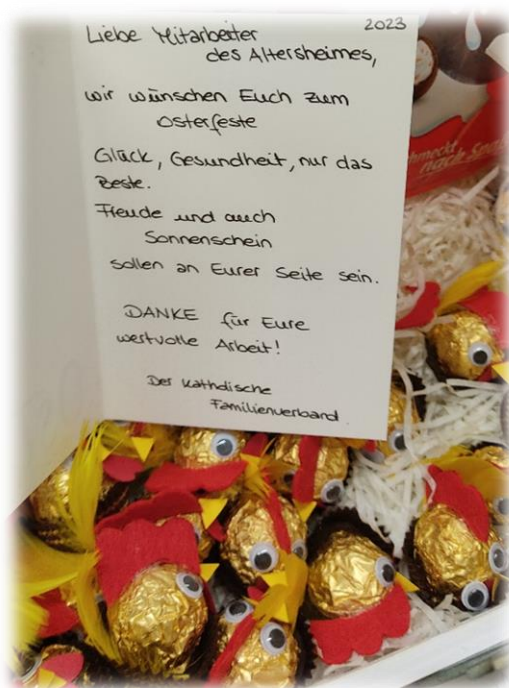 2023
Liebe Mitarbeiter
des Altersheimes,
wir wünschen Euch zum
Osterfeste
Glück, Gesundheit, nur das
Beste.
Freude und auch
Sonnenschein
sollen an Eurer Seite sein.
DANKE für Eure
wertvolle Arbeit!
Der Katholische
Familienverband
nach